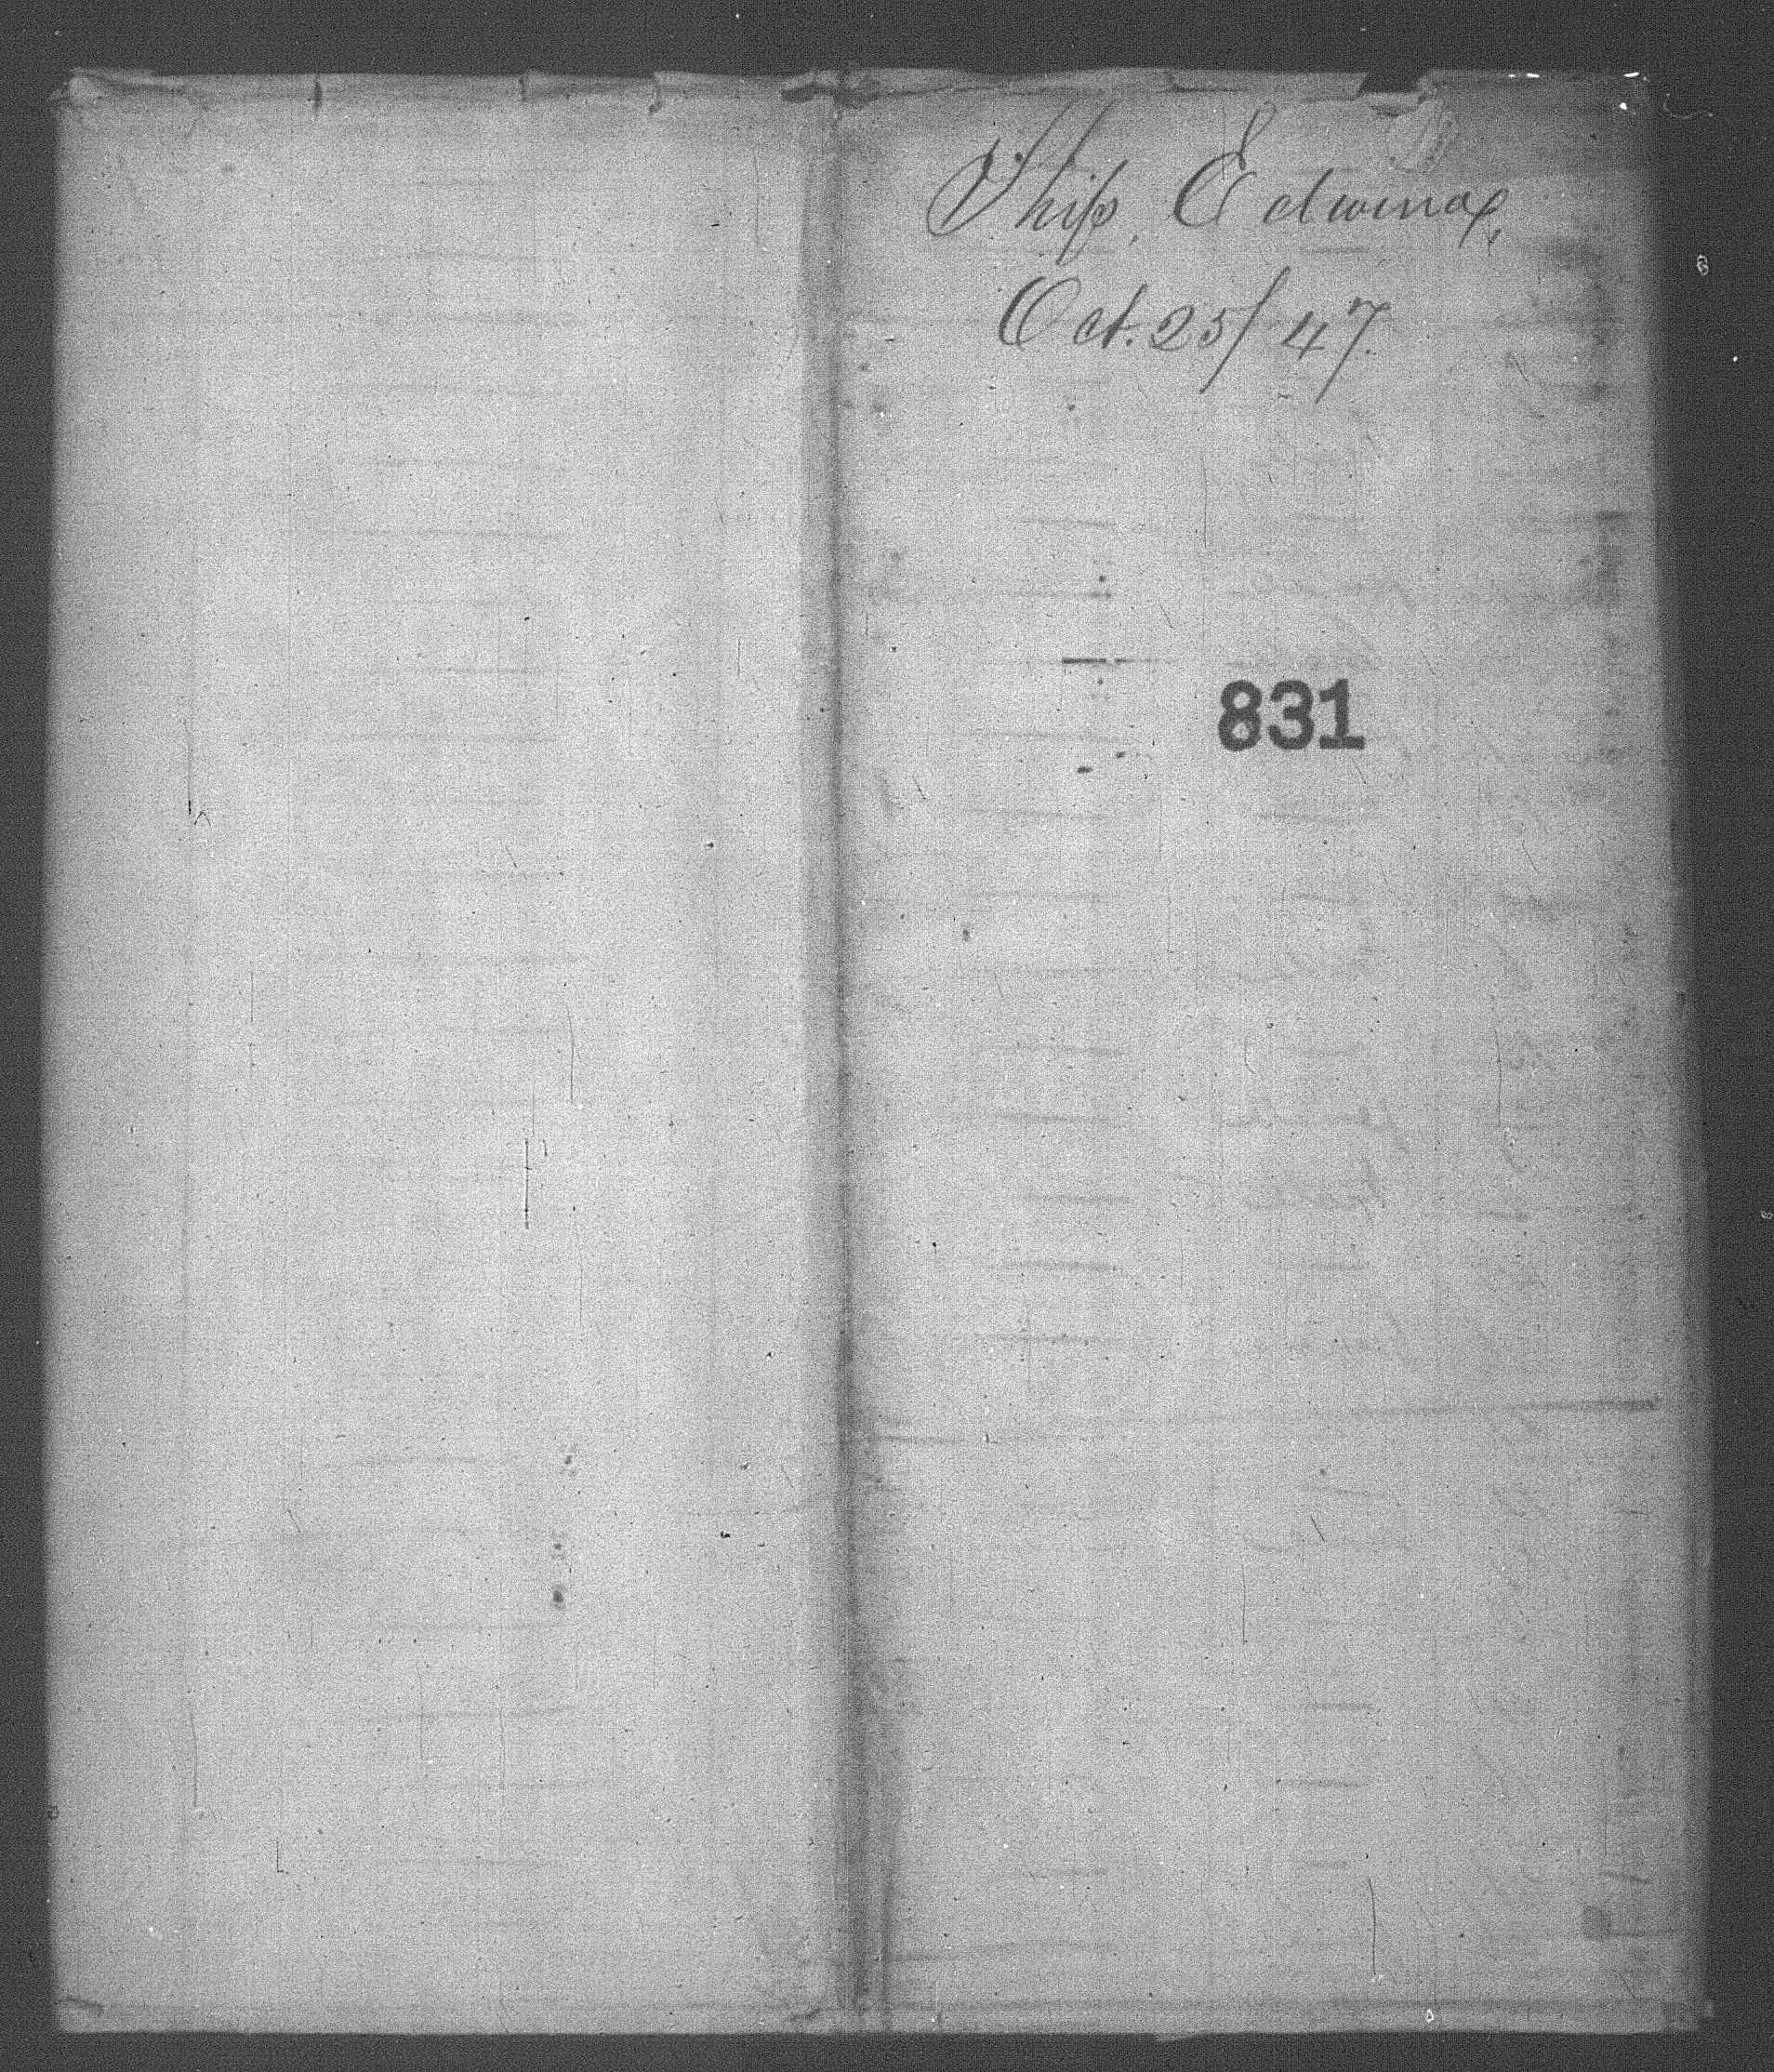 Ship, Edwina,
Oct. 25/47.
831